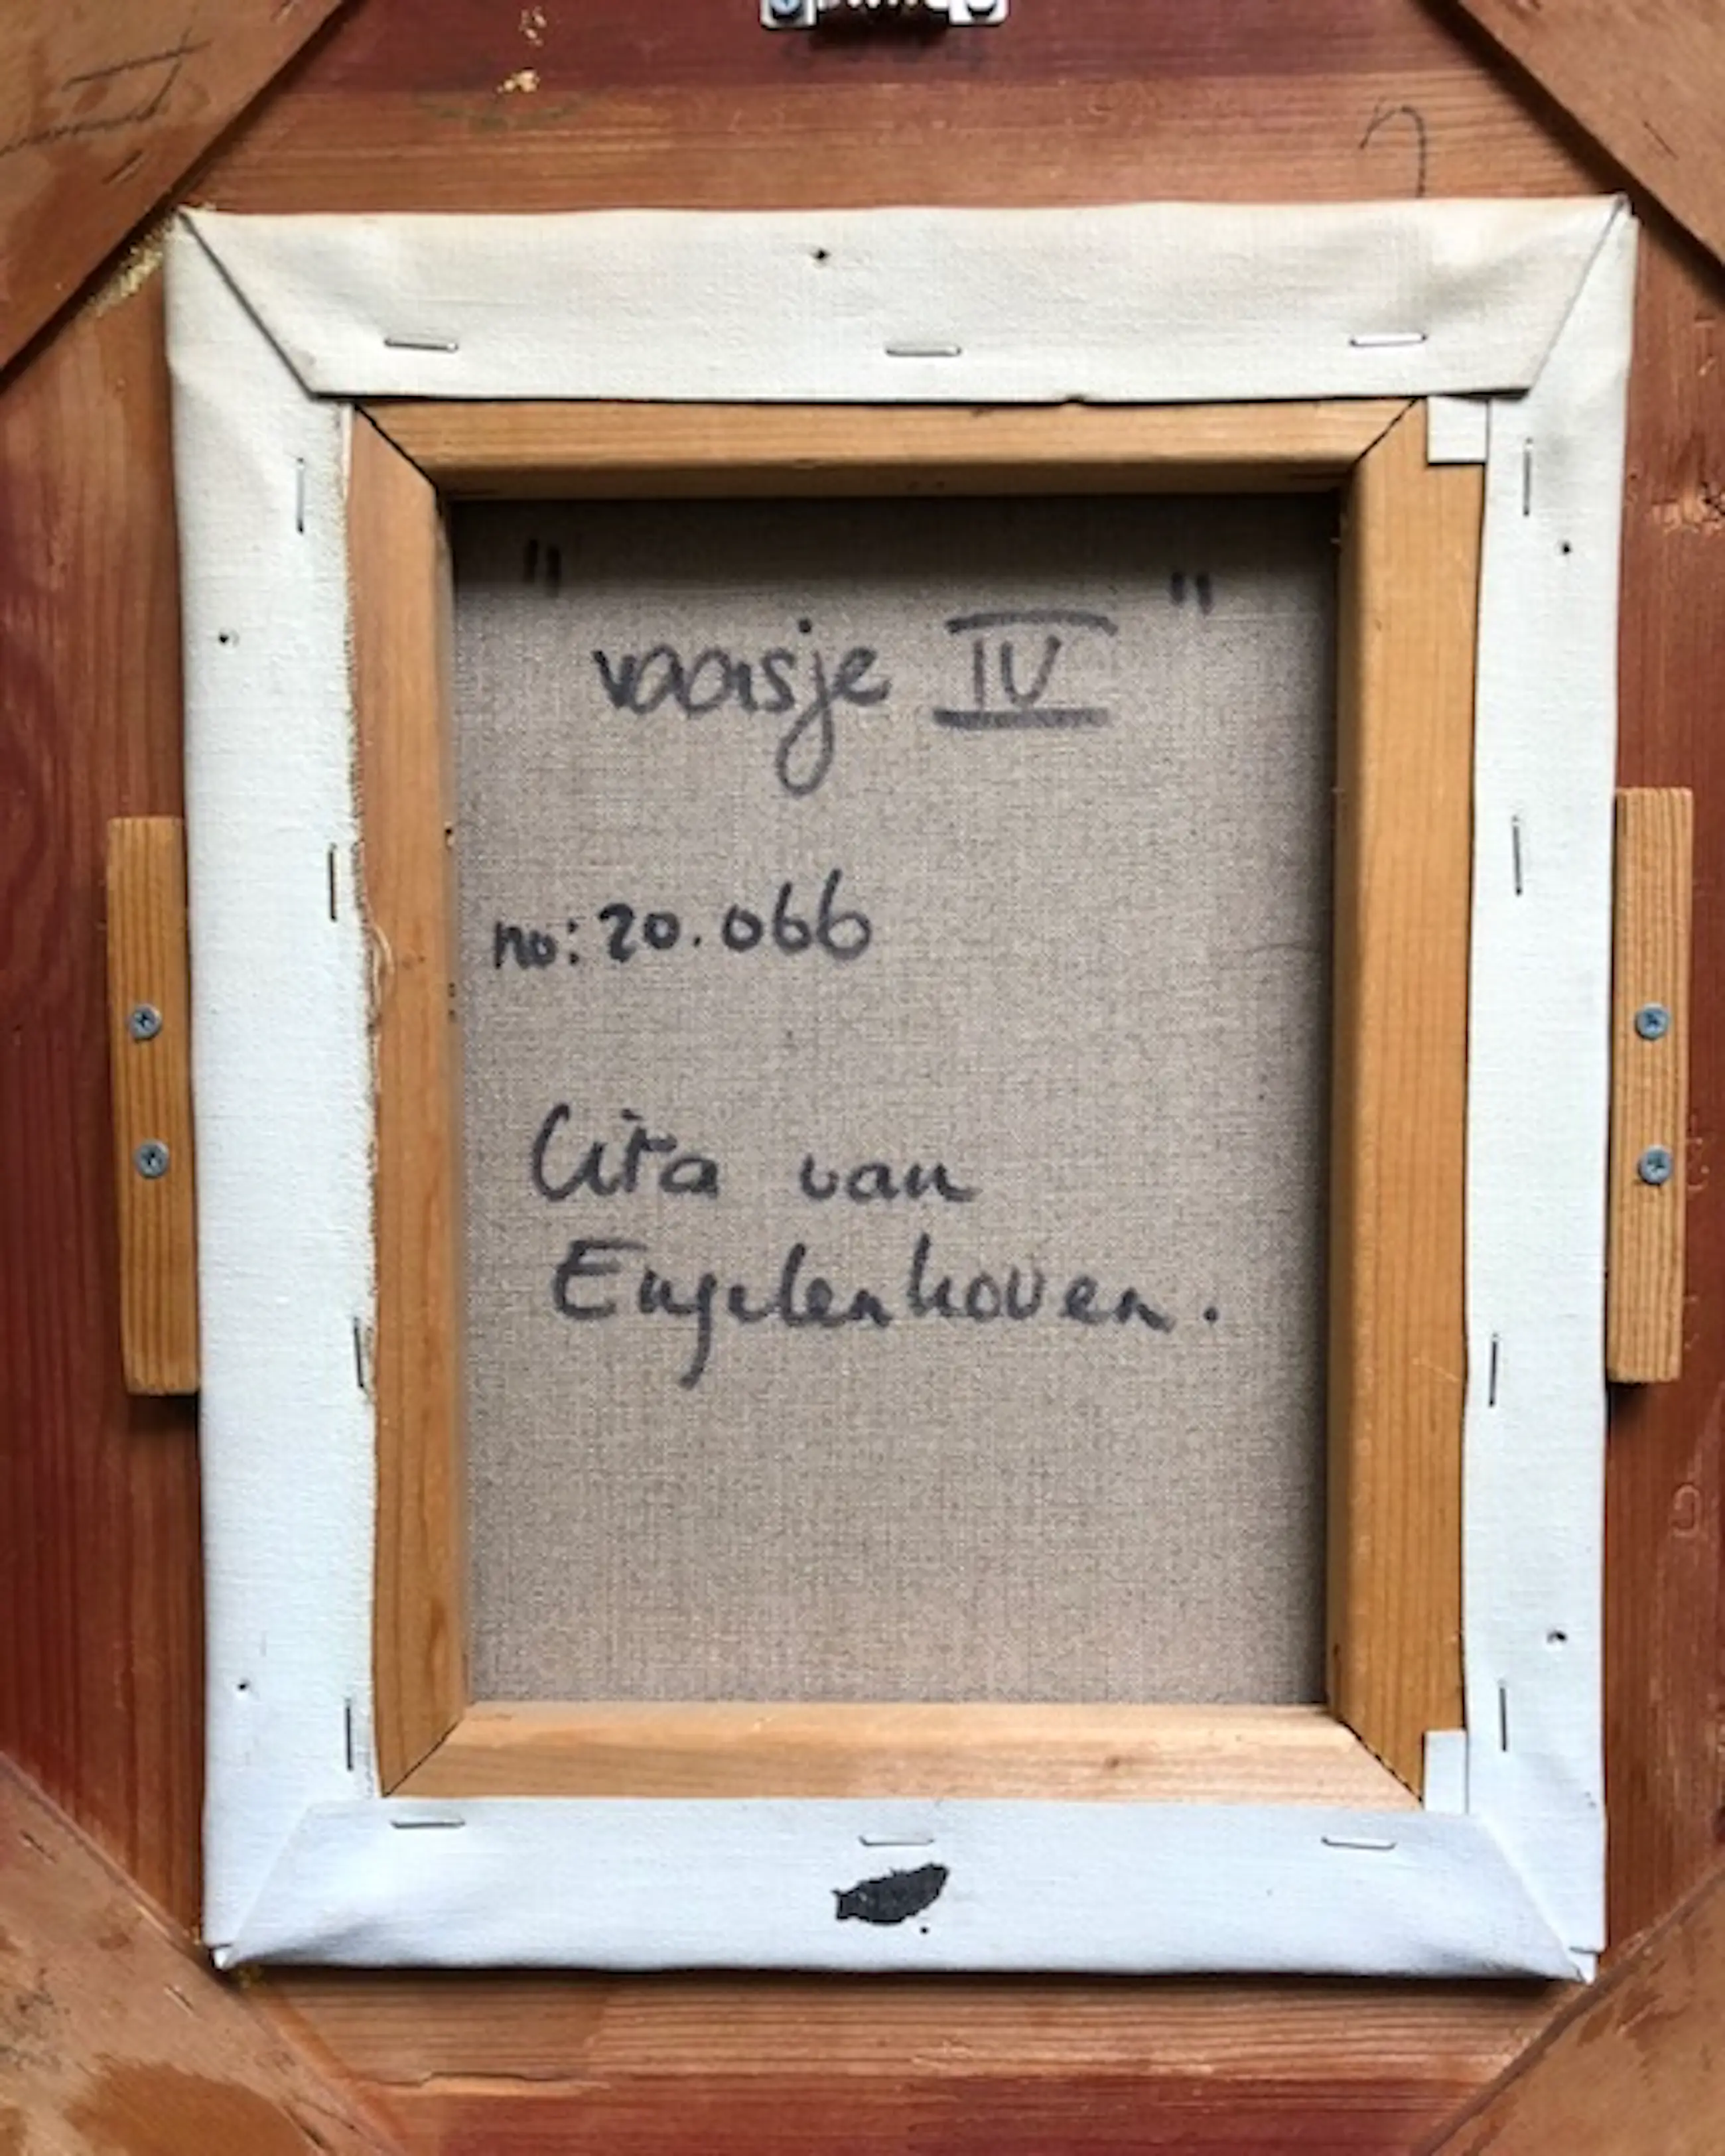 "vaasje IV"
no: 20.066
Cita van
Engelenhoven.